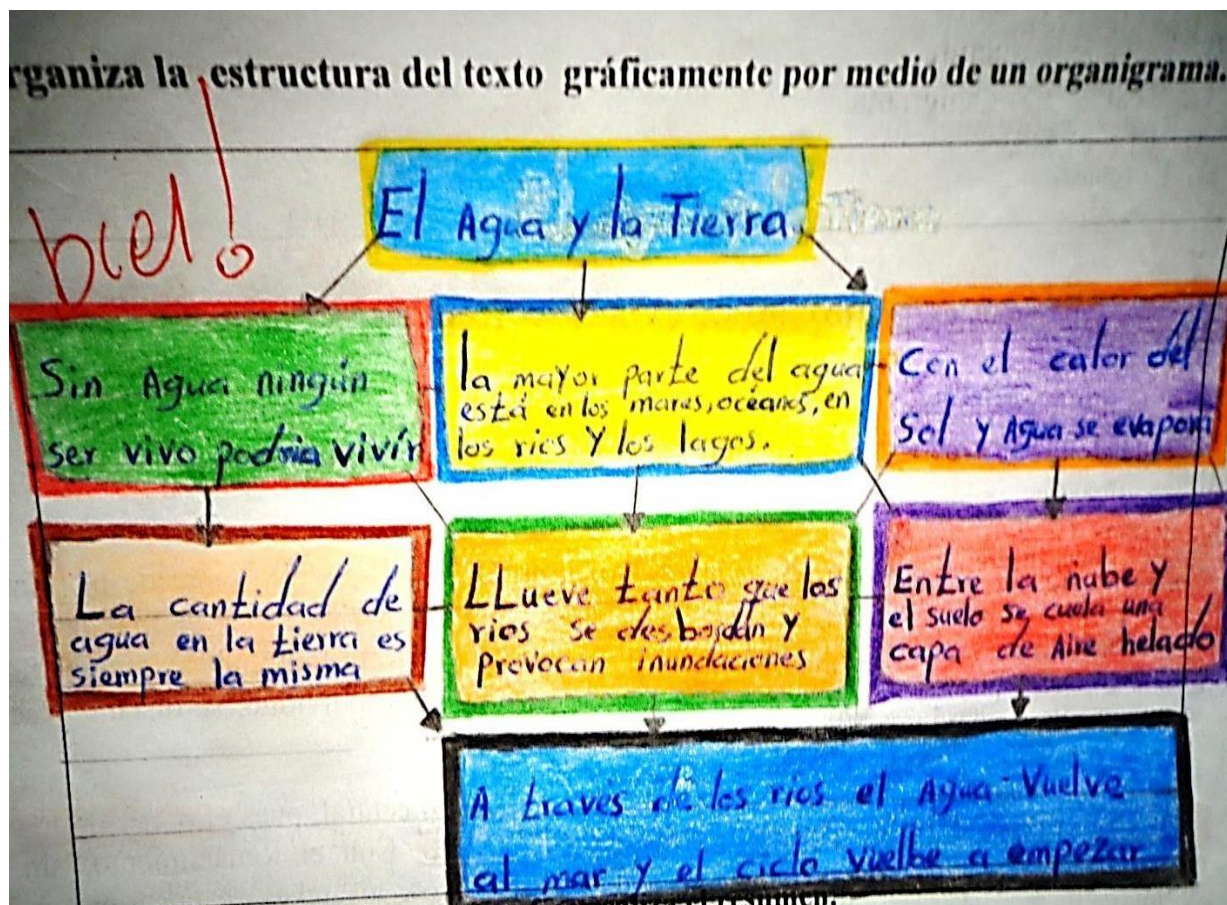 rganiza la estructura del texto gráficamente por medio de un organigrama.
bien!
El Agua y la Tierra.
Sin Agua ningún
ser vivo podria vivír
la mayor parte del agua
está en los mares, océanos, en
los rios Y los lagos.
Con el calor del
Sol y Agua se evapora
La cantidad de
agua en la tierra es
siempre la misma
LLueve tanto que los
rios se desbordan Y
provocan inundaciones
Entre la nube Y
el suelo se cuela una
capa de Aire helado
A través de los rios el Agua Vuelve
al mar y el ciclo vuelbe a empezar